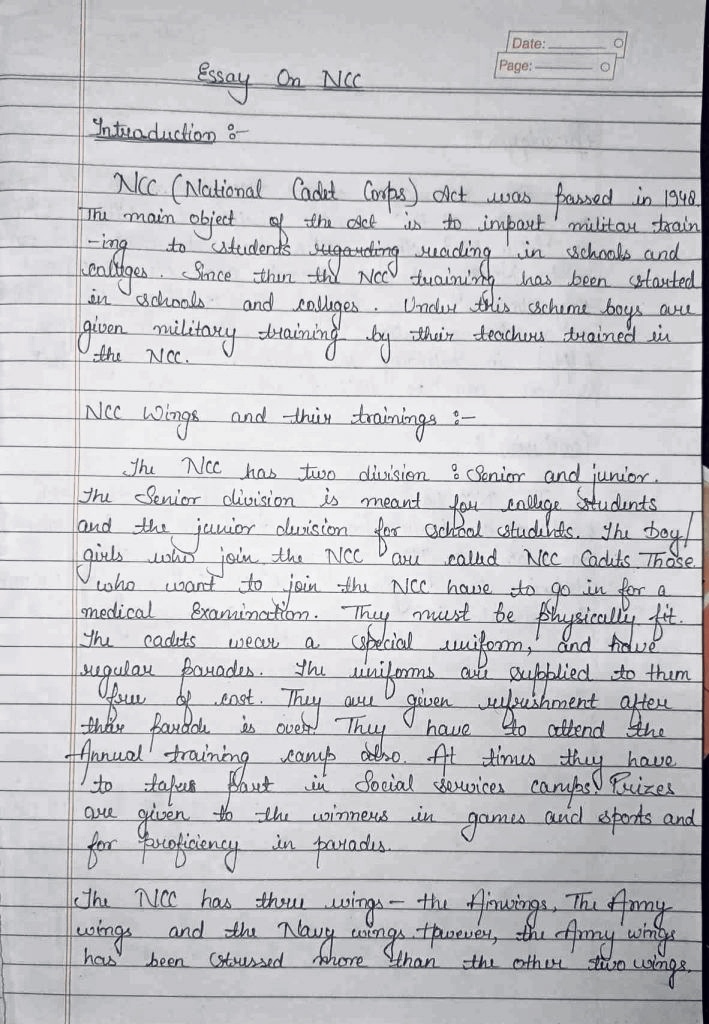 Date:
Page:
Essay On NCC
Intraduction :-
NCC (National Cadet Corps) Act was passed in 1948.
The main object of the Act is to impart militar train
-ing to students regarding reading in schools and
colleges. Since then the NCC training has been started
in schools and colleges. Under this scheme boys are
given military training by their teachers trained in
the NCC.
NCC Wings and their trainings :-
The NCC has two division : Senior and junior.
The Senior division is meant for college students
and the junior division for school students. The boy/
girls who join the NCC are called NCC Cadets. Those
who want to join the NCC have to go in for a
medical Examination. They must be physically fit.
The cadets wear a special uniform, and have
regular parades. The uniforms are supplied to them
free of cost. They are given refreshment after
their parade is over. They have to attend the
Annual training camp also. At times they have
to part in Social services camps. Prizes
are given to the winners in games and sports and
for proficiency in parades.
The NCC has three wings - the Airwings, The Army
wings and the Navy wings. However, the Army wings
has been stressed more than the other two wings.